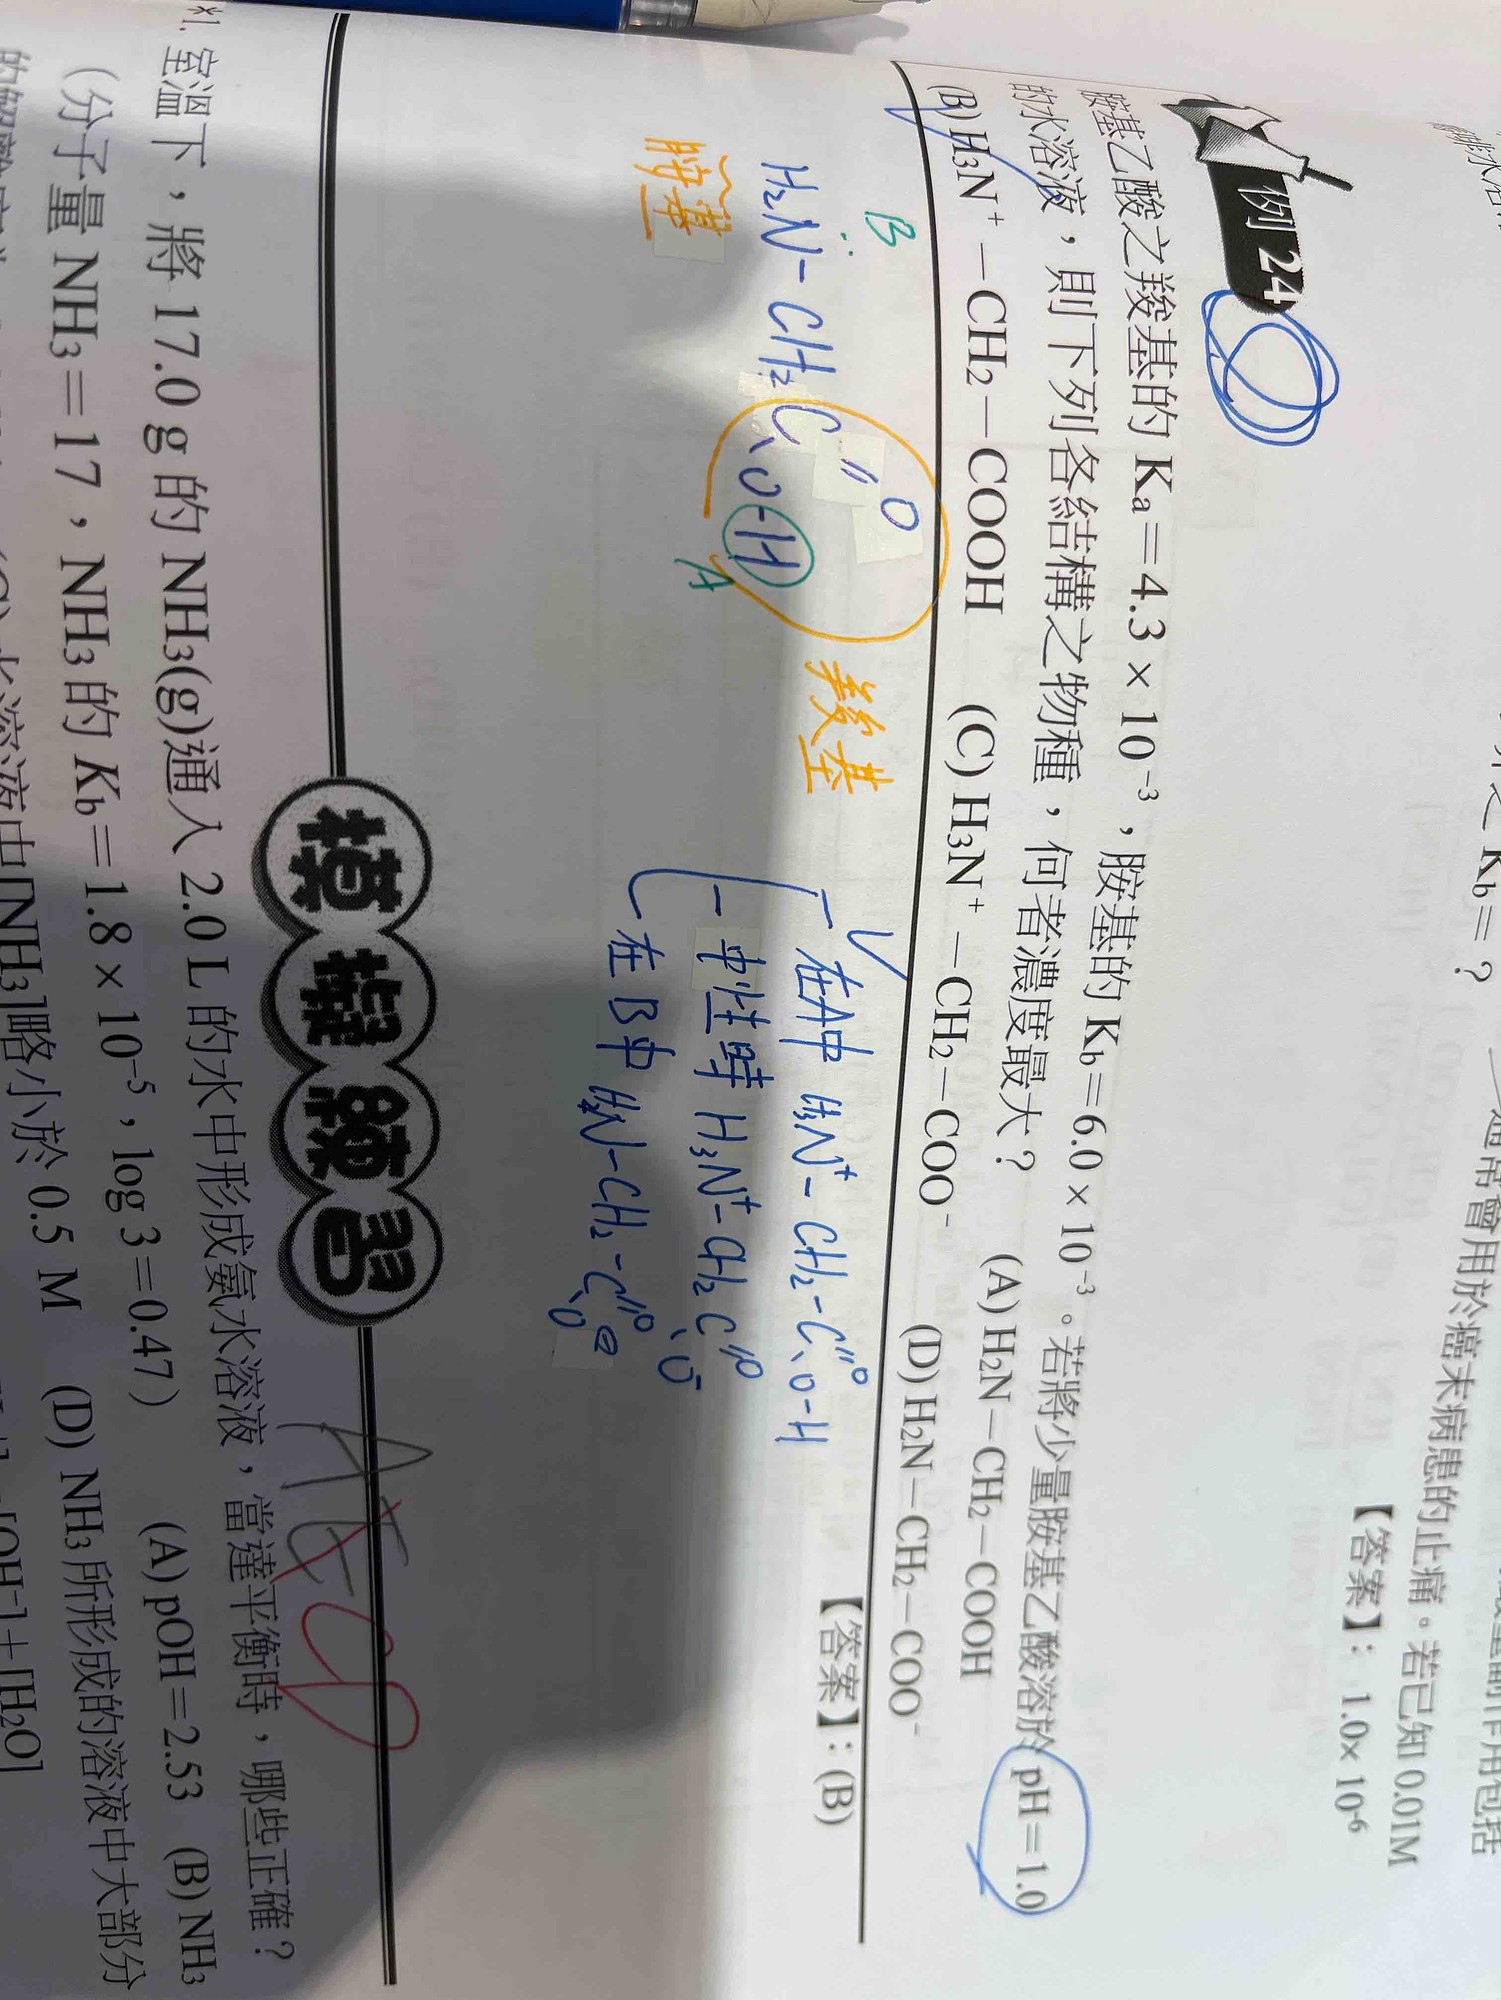 之 Kb=?
通常會用於癌末病患的止痛。若已知 0.01M
【答案】:1.0×10⁻⁶
例 24
胺基乙酸之羧基的 Ka=4.3×10⁻³,胺基的 Kb=6.0×10⁻³。若將少量胺基乙酸溶於 pH=1.0
的水溶液,則下列各結構之物種,何者濃度最大? (A) H₂N-CH₂-COOH
(B) H₃N⁺-CH₂-COOH (C) H₃N⁺-CH₂-COO⁻ (D) H₂N-CH₂-COO⁻
【答案】:(B)
B
H₂N-CH₂C O O-H
A
胺基
羧基
在A中 H₃N⁺-CH₂-C O O-H
中性時 H₃N⁺-CH₂C O O⁻
在B中 H₂N-CH₂-C O O⊖
模擬練習
A E CD
*1. 室溫下,將 17.0 g 的 NH₃(g)通入 2.0 L 的水中形成氨水溶液,當達平衡時,哪些正確?
(分子量 NH₃=17,NH₃ 的 Kb=1.8×10⁻⁵,log 3=0.47) (A) pOH=2.53 (B) NH₃
水溶液中[NH₃]略小於 0.5 M (D) NH₃ 所形成的溶液中大部分